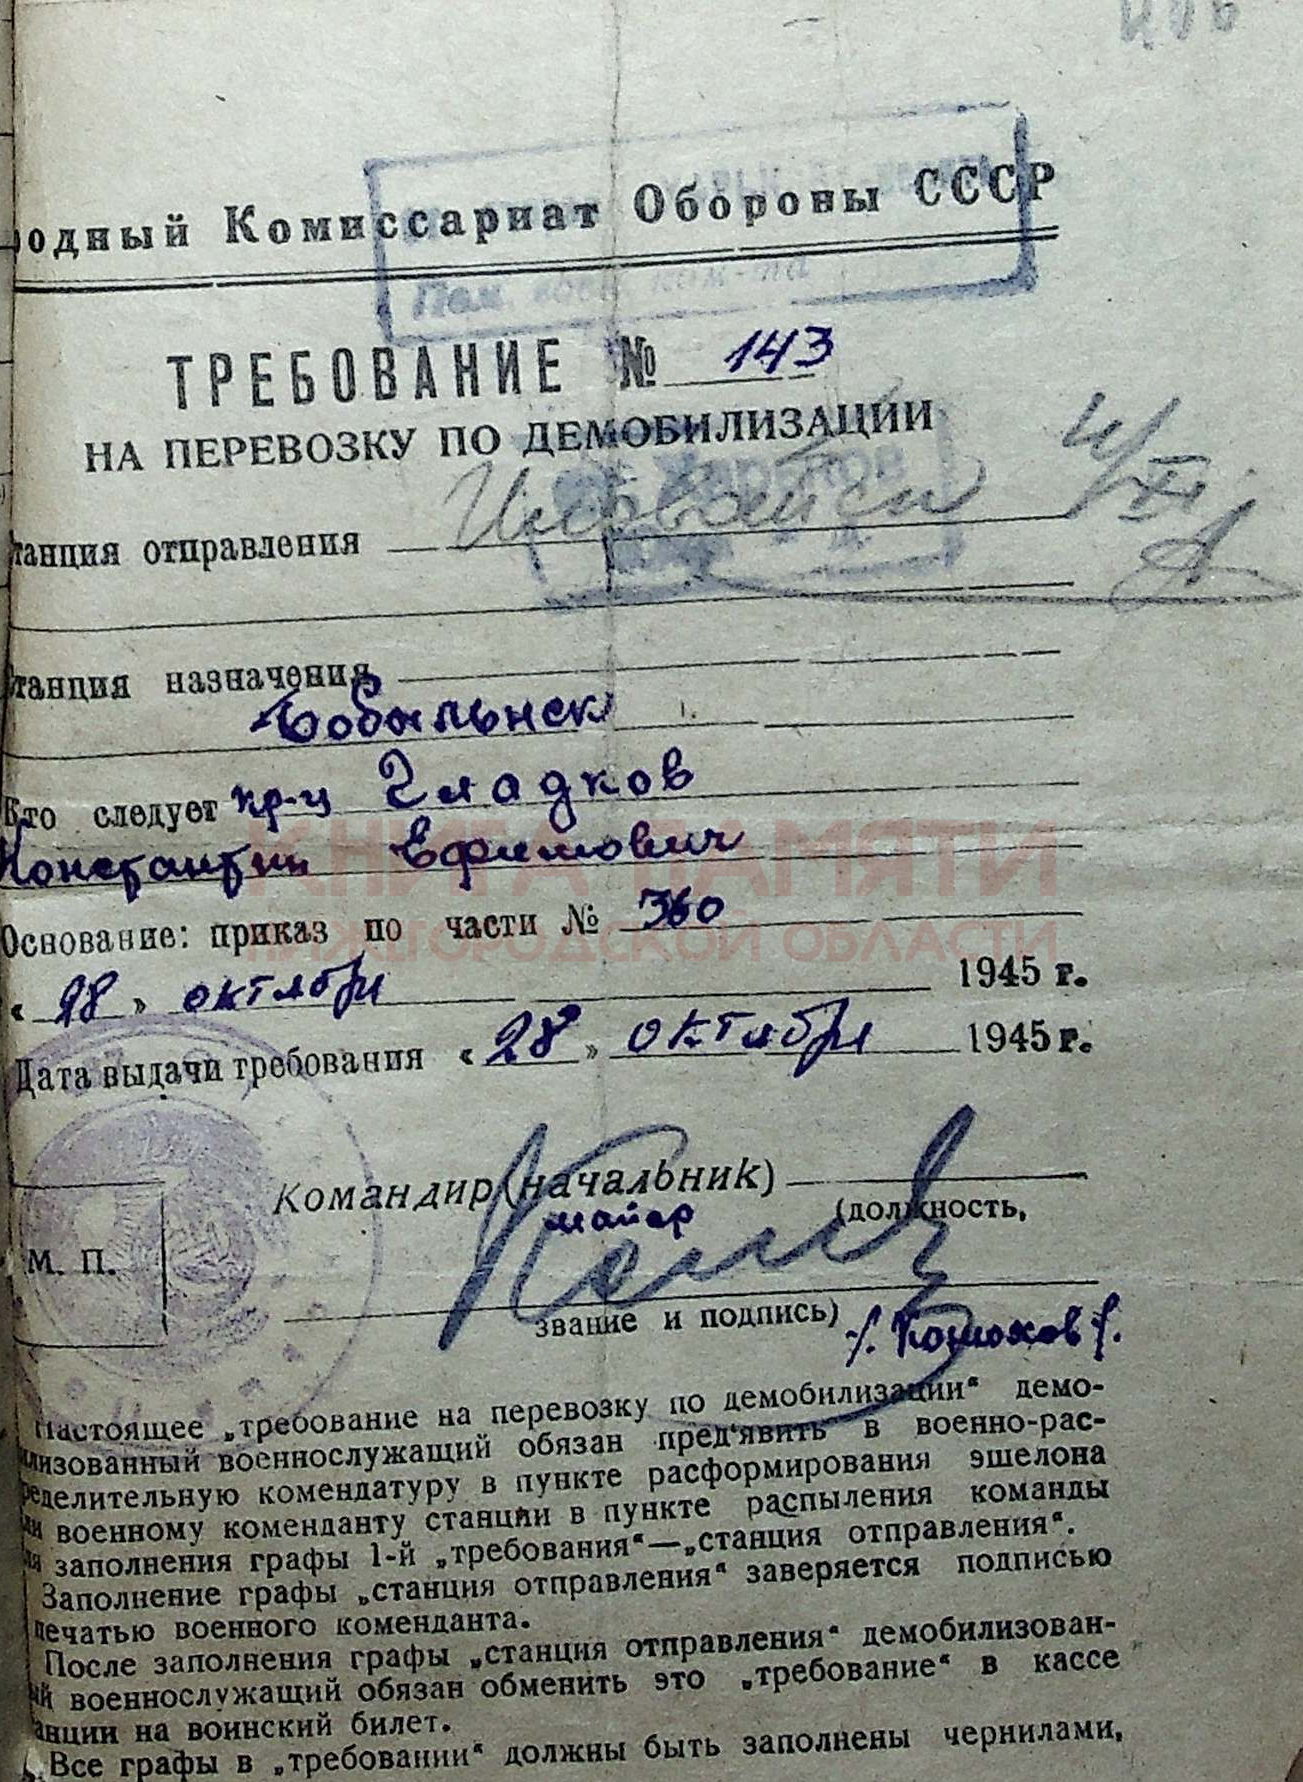 одный Комиссариат Обороны СССР
Пом. воен. ком-та
ТРЕБОВАНИЕ № 143
НА ПЕРЕВОЗКУ ПО ДЕМОБИЛИЗАЦИИ
танция отправления
танция назначения
Кто следует кр-ц Гладков
Константин Ефимович
КНИГА ПАМЯТИ
НИЖЕГОРОДСКОЙ ОБЛАСТИ
Основание: приказ по части № 360
« 28 » октября 1945 г.
Дата выдачи требования « 28 » октября 1945 г.
Командир (начальник)
майор (должность,
М. П.
звание и подпись)
Настоящее „требование на перевозку по демобилизации“ демо-
лизованный военнослужащий обязан пред‘явить в военно-рас-
ределительную комендатуру в пункте расформирования эшелона
ли военному коменданту станции в пункте распыления команды
ля заполнения графы 1-й „требования“—„станция отправления“.
Заполнение графы „станция отправления“ заверяется подписью
печатью военного коменданта.
После заполнения графы „станция отправления“ демобилизован-
ый военнослужащий обязан обменить это „требование“ в кассе
танции на воинский билет.
Все графы в „требовании“ должны быть заполнены чернилами,